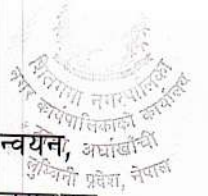 शितगंगा नगरपालिका
नगर कार्यपालिकाको कार्यालय
अर्घाखाँची
लुम्बिनी प्रदेश, नेपाल
न्वयन,